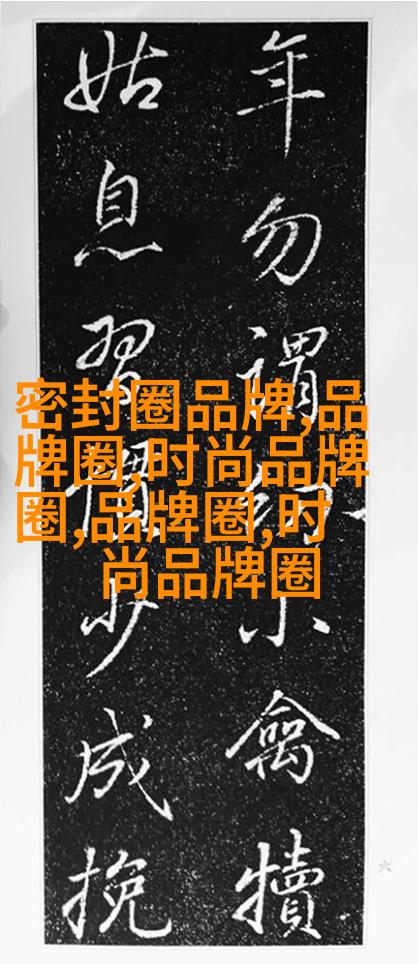 年勿謂小禽犢
姑息習慣少成挽
密封圈品牌,品
牌圈,时尚品牌
圈,品牌圈,时
尚品牌圈
六